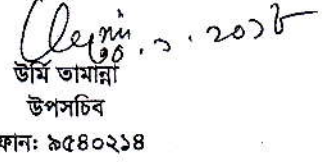 ১০.১.২০১৮
উর্মি তামান্না
উপসচিব
ফোন: ৯৫৪০২১৪